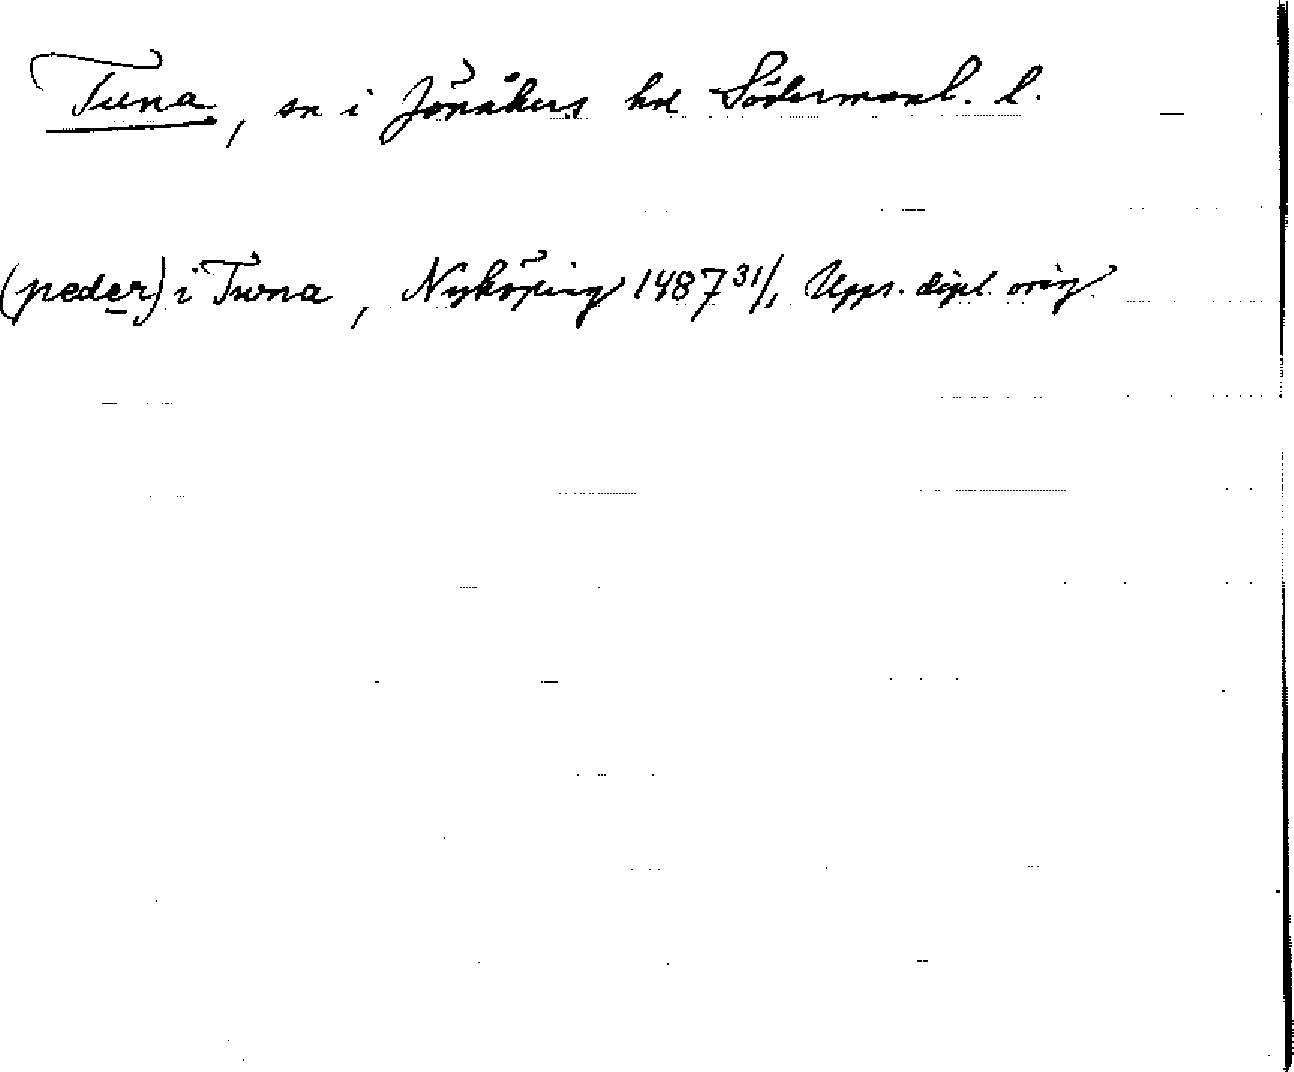 Tuna, sn i Jönåkers hd Södermanl. l.
(peder) i Twna, Nyköping 1487 31/1 Upps. dipl. orig